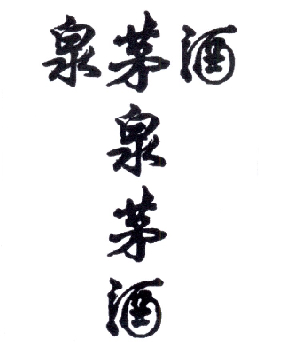 泉茅酒
泉
茅
酒